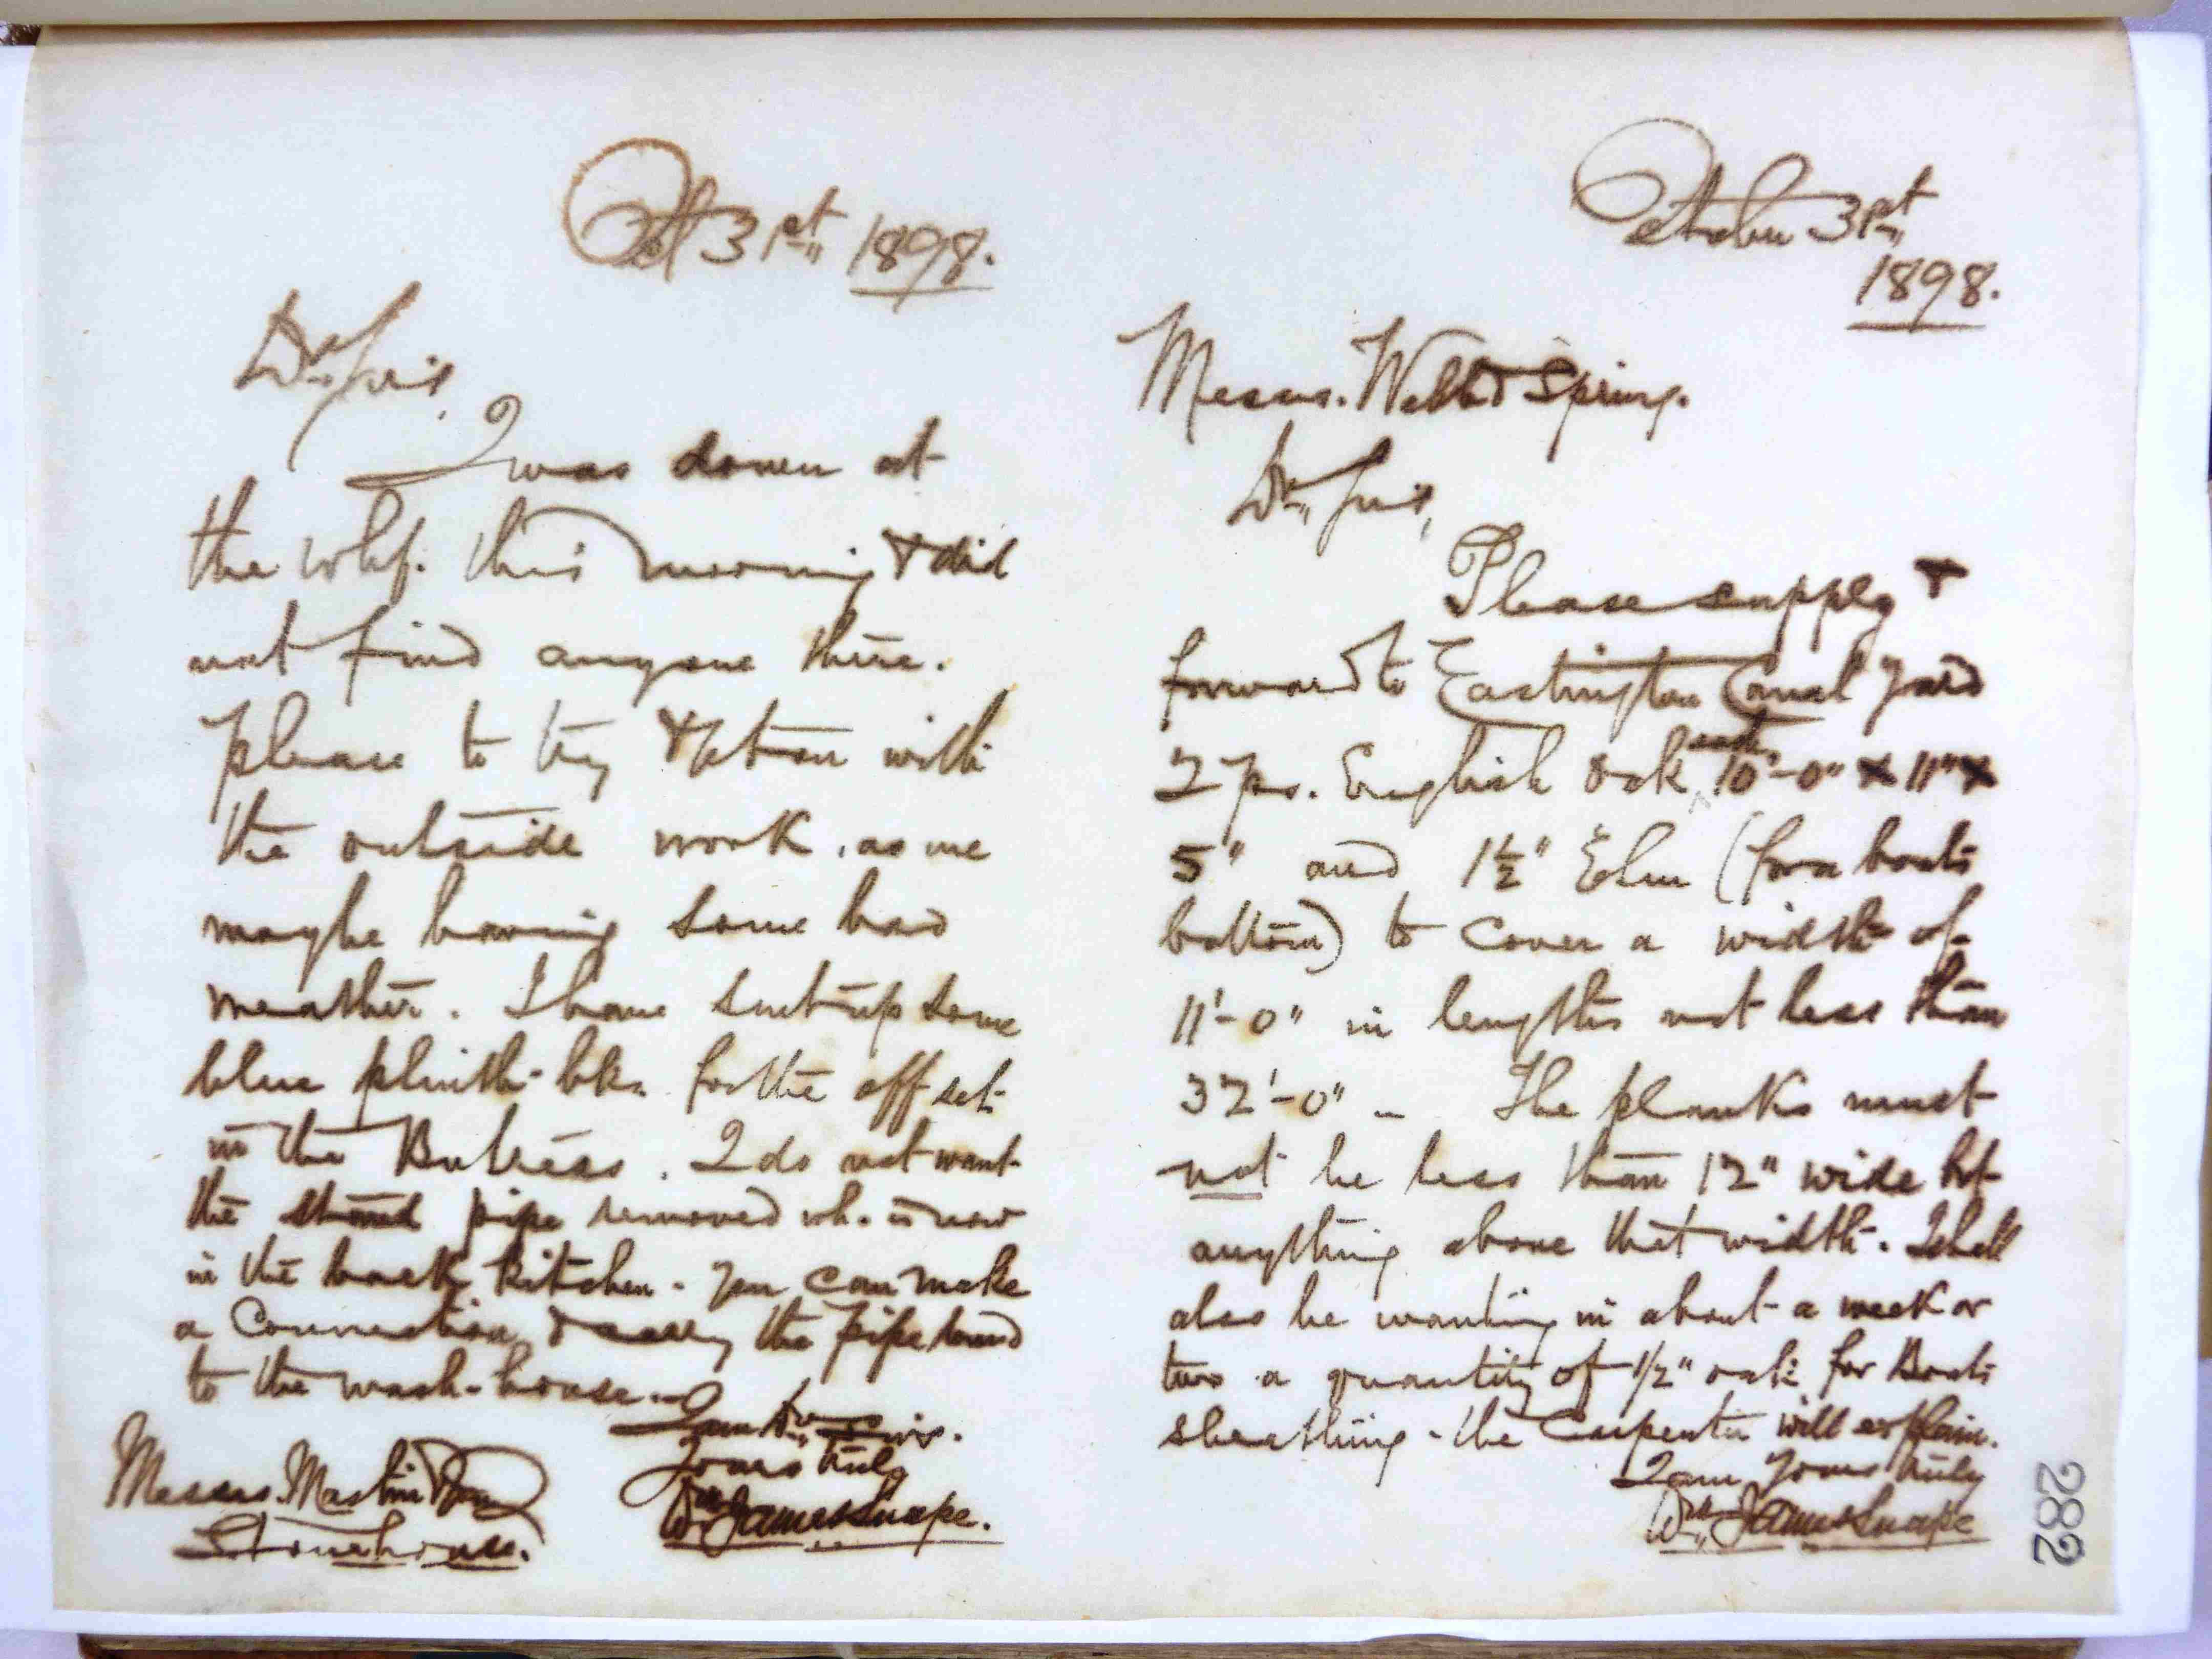 Oct 31st 1898.
Dr. Sirs,
I was down at
the whf. this morning & did
not find anyone there.
Please to try & get on with
the outside work, as we
maybe having some bad
weather. I have sent up some
blue plinth-bks. for the off set
in the Butress. I do not want
the stand pipe removed wh. is now
in the back kitchen. You can make
a connection & carry the pipe round
to the wash-house. -
I am Dr. Sirs.
Yours truly
Wm. James Snape.
Messrs. Martin & Son
Stonehouse.
October 31st
1898.
Messrs. Webb & Spring.
Dr. Sirs,
Please supply &
forward to Eastington Canal Yard
2 ps. English oak each 10'-0" x 11" x
5" and 1½" Elm (for a boats
bottom) to cover a width of
11'-0" in lengths not less than
32'-0" - The planks must
not be less than 12" wide bt
anything above that width. I shall
also be wanting in about a week or
two a quantity of 1/2" oak for Boats
sheathing - the Carpenter will explain.
I am Yours truly
Wm. James Snape
282